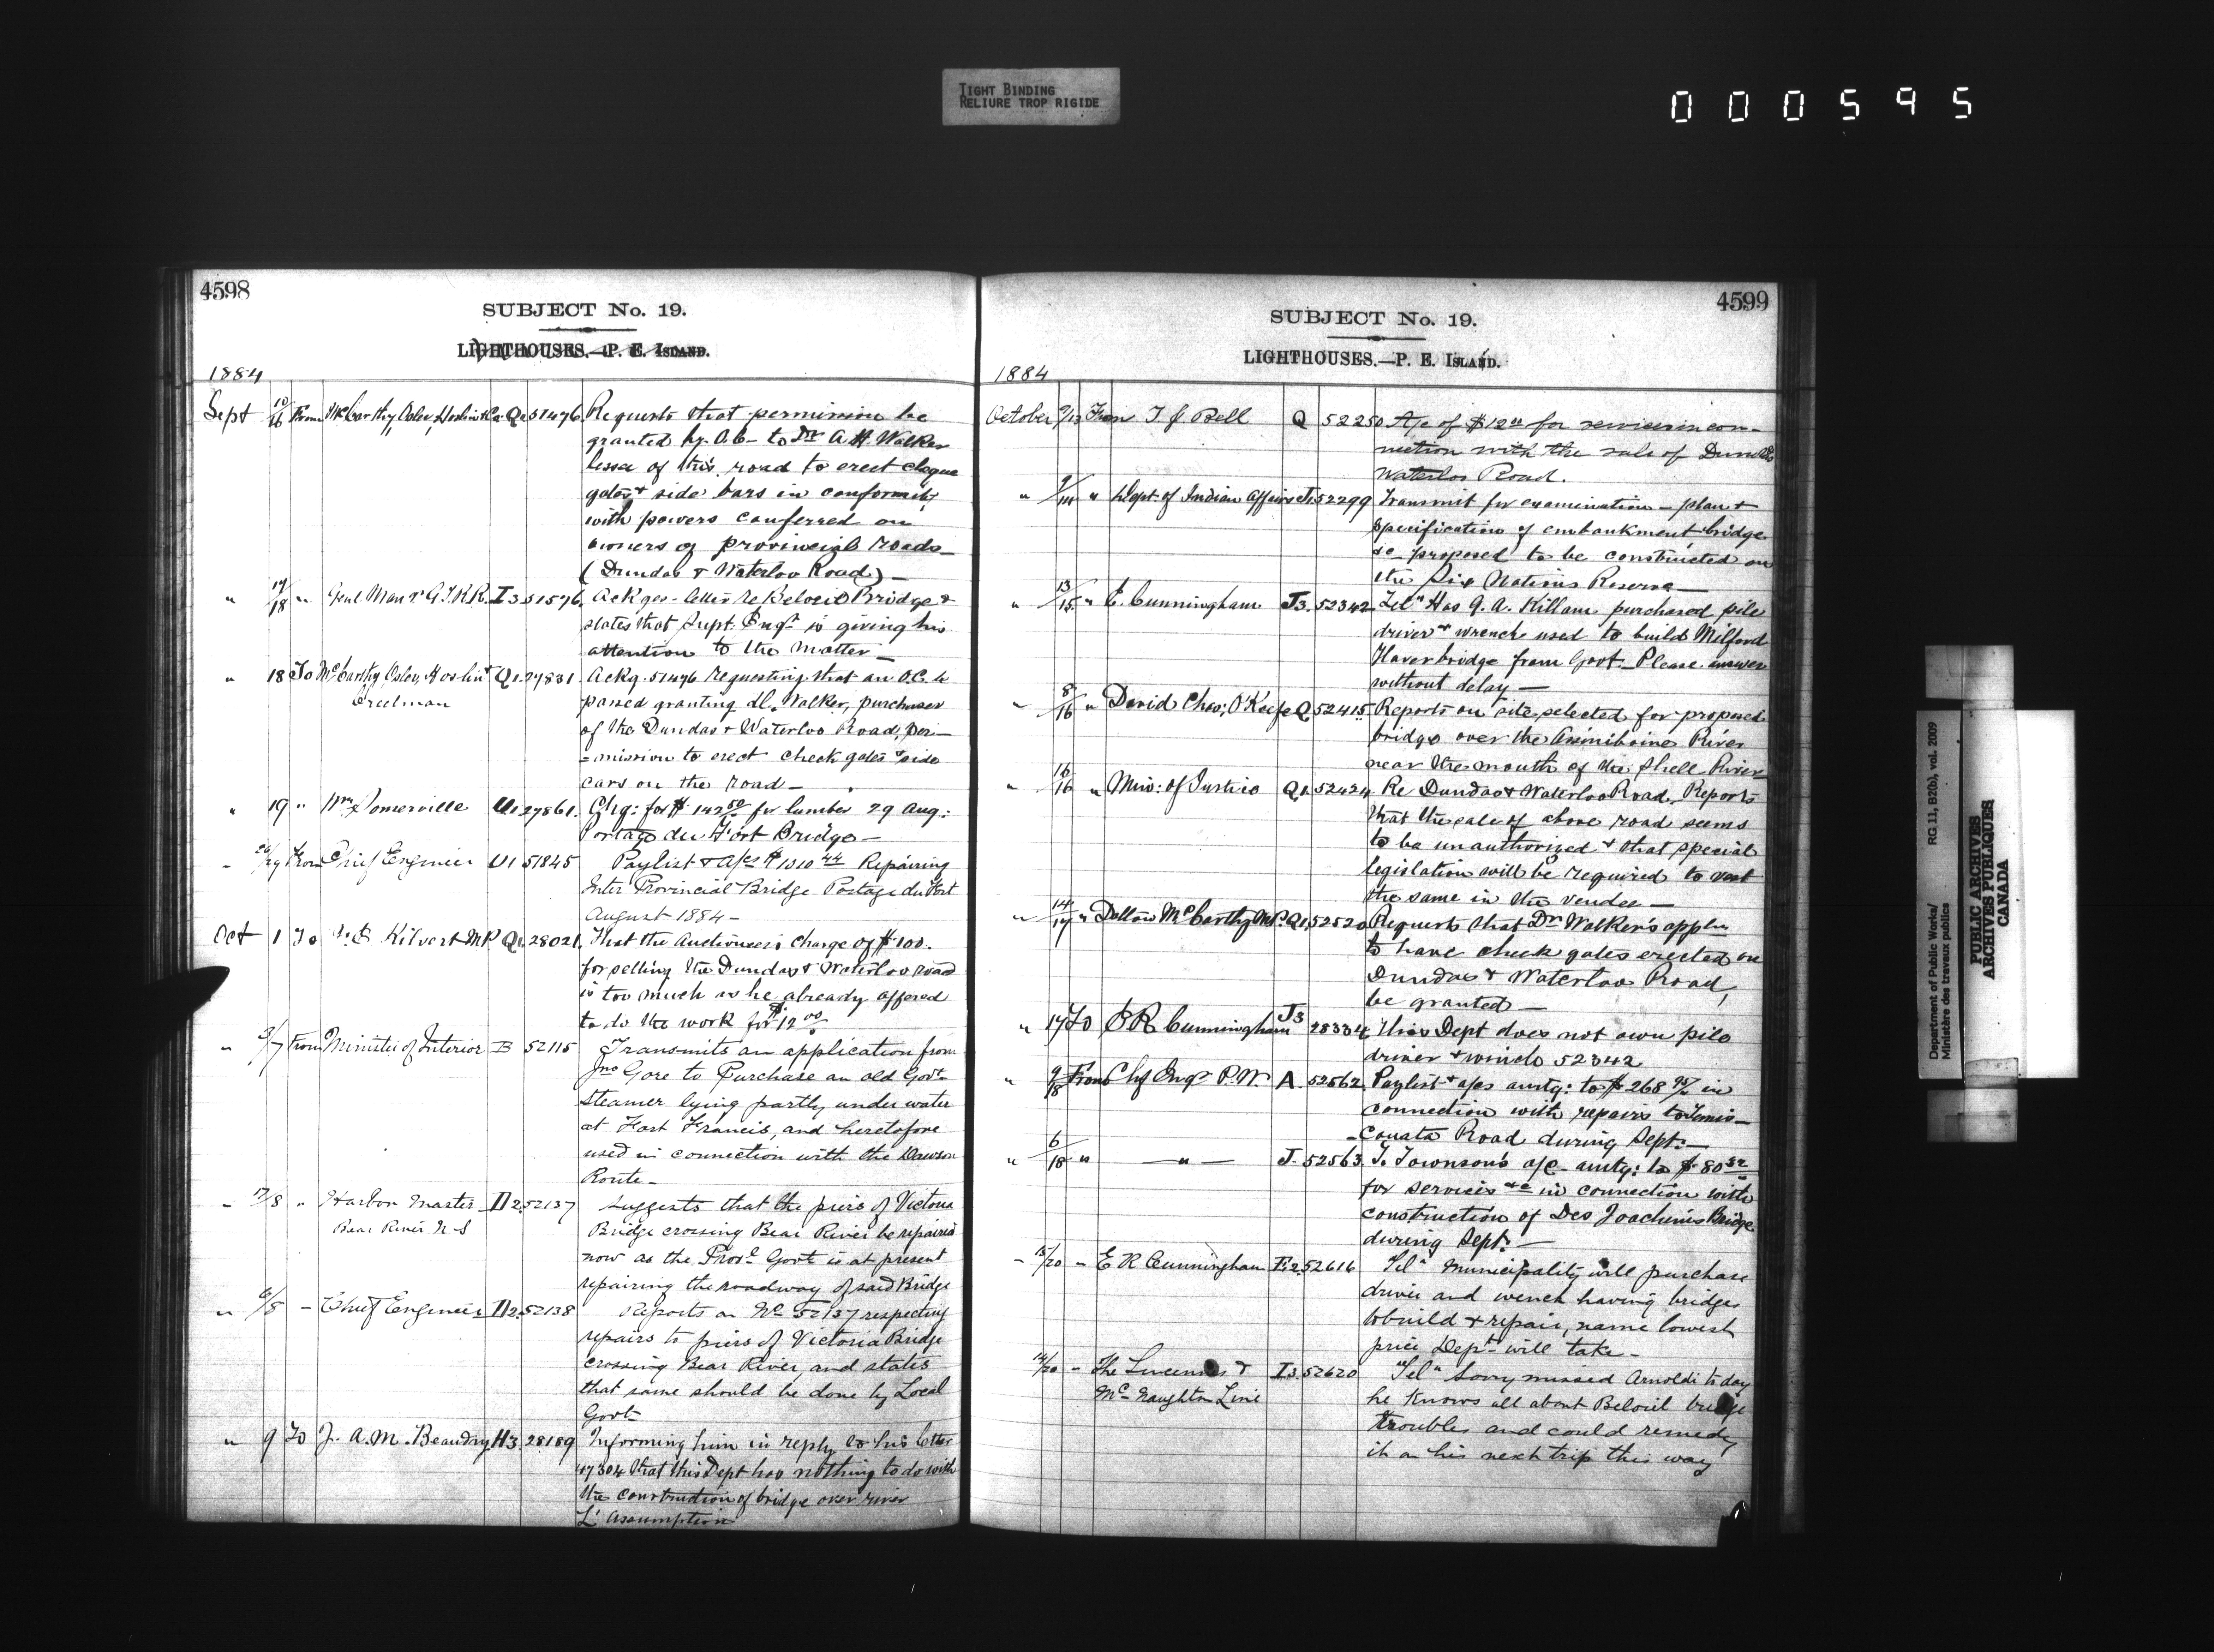 TIGHT BINDING
RELIURE TROP RIGIDE
000595
4598
SUBJECT No. 19.
LIGHTHOUSES.—P. E. ISLAND.
1884
Sept 10/16 From McCarthy, Osler, Hoskin & Co Q1 51476 Requests that permission be
granted by O.C. to Dr A. H. Walker
lessee of this road to erect cheque
gates & side bars in conformity
with powers conferred on
owners of provincial roads—
(Dundas & Waterloo Road)—
" 17/18 " Genl Manr G.T.R.R. I3 51576 Ackges letter re Beloeil Bridge &
states that Supt. Engr is giving his
attention to the matter—
" 18 To McCarthy, Osler, Hoskin & Q1 27831 Ackg. 51476 requesting that an O.C. be
Creelman passed granting Walker, purchaser
of the Dundas & Waterloo Road, per-
-mission to erect check gates & side
cars on the road—
" 19 " Wm Somerville U1 27861. Chq: for $142.50 for lumber 29 Aug:
Portage du Fort Bridge—
" 26/29 From Chief Engineer U1 51845 Paylist & a/cs $1010 44 Repairing
Inter Provincial Bridge Portage du Fort
August 1884—
Oct 1 To Kilvert MP Q1. 28021. That the Auctioneer's charge of $100.
for selling the Dundas & Waterloo road
is too much as he already offered
to do the work for $12 00
" 3/7 From Minister of Interior B 52115 Transmits an application from
Jno Gore to Purchase an old Govt
Steamer lying partly under water
at Fort Francis, and heretofore
used in connection with the Dawson
Route—
" 7/8 " Harbor Master D2 52137 Suggests that the piers of Victoria
Bear River N-S Bridge crossing Bear River be repaired
now as the Provl Govt is at present
repairing the roadway of said Bridge
" 6/8 — Chief Engineer D2. 52138 Reports on No 52137 respecting
repairs to piers of Victoria Bridge
crossing Bear River, and states
that same should be done by Local
Govt
" 9 To J. A. M. Beaudry H3. 28189 Informing him in reply to his letter
47304 that this Dept has nothing to do with
the construction of bridge over river
L'Assumption
4599
SUBJECT No. 19.
LIGHTHOUSES.—P. E. ISLAND.
1884
October 9/13 From T J Bell Q 52250 A/c of $12 00 for services in con-
nection with the sale of Dundas
Waterloo Road.
" " Dept. of Indian Affairs J. 52299 Transmit for examination — plan &
specification of embankment bridge
&c proposed to be constructed on
the Six Nations Reserve—
" 13/15 " E. Cunningham J3. 52342 "Tel" Has G. A. Killam purchased pile
driver & wrench used to build Milford
Haven bridge from Govt. Please answer
without delay—
" 8/16 " David Chas: O'Keefe Q. 52415 Reports on site selected for proposed
bridge over the Assiniboine River
near the mouth of the Shell River
" 16/16 " Min: of Justice Q1. 52424 Re Dundas & Waterloo Road. Reports
that the sale of above road seems
to be unauthorized & that special
legislation will be required to vest
the same in the vendee—
" 14/17 " Dalton McCarthy MP. Q1. 52520 Requests that Dr Walker's appln
to have check gates erected on
Dundas & Waterloo Road,
be granted—
" 17 To E R Cunningham J3 28334 This Dept does not own pile
driver & winch 52342
" 9/18 From Chf Engr P.W A. 52562 Paylist & a/cs amtg: to $268 95 in
connection with repairs to Temis-
-Couata Road during Sept:—
" 6/18 " —"— J. 52563 T. Townson's a/c amtg: to $80
for services &c in connection with
construction of Des Joachims Bridge
during Sept:—
" 15/20 " E R Cunningham E2 52616 "Tel" Municipality will purchase
driver and wench having bridge
to build & repair, name lowest
price Dept will take—
14/20 " The & I3. 52620 "Tel" Sorry missed Arnoldi to day
McNaughton Line he knows all about Beloeil bridge
troubles and could remedy
it on his next trip this way
Department of Public Works/ RG 11, B2(b), vol. 2009
Ministère des travaux publics
PUBLIC ARCHIVES
ARCHIVES PUBLIQUES
CANADA